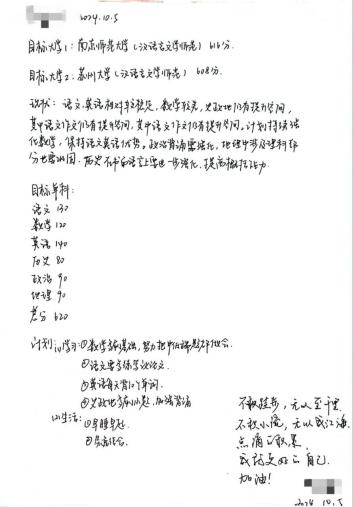 2024.10.5
目标大学1：南京师范大学（汉语言文学师范）616分.
目标大学2：苏州大学（汉语言文学师范）608分.
现状：语文.英语相对较稳定，数学较差，史政地仍有提升空间，
其中语文作文仍有提升空间，其中语文作文仍有提升空间。计划持续强
化数学，保持语文英语优势。政治背诵需强化，地理中涉及理科部
分也需巩固。历史 进一步强化，提高概括能力
目标单科：
语文 130
数学 120
英语 140
历史 80
政治 90
地理 90
总分 620
计划：(1)学习：①数学夯基础，努力把中低档题不失分.
②语文要多练字议论文.
③英语每天背10个单词.
④史政地多刷小题，加强背诵
(2)生活：①早睡早起.
②劳逸结合.
不积跬步，无以至千里.
不积小流，无以成江海.
点滴
成就更好的自己
加油！
2024.10.5